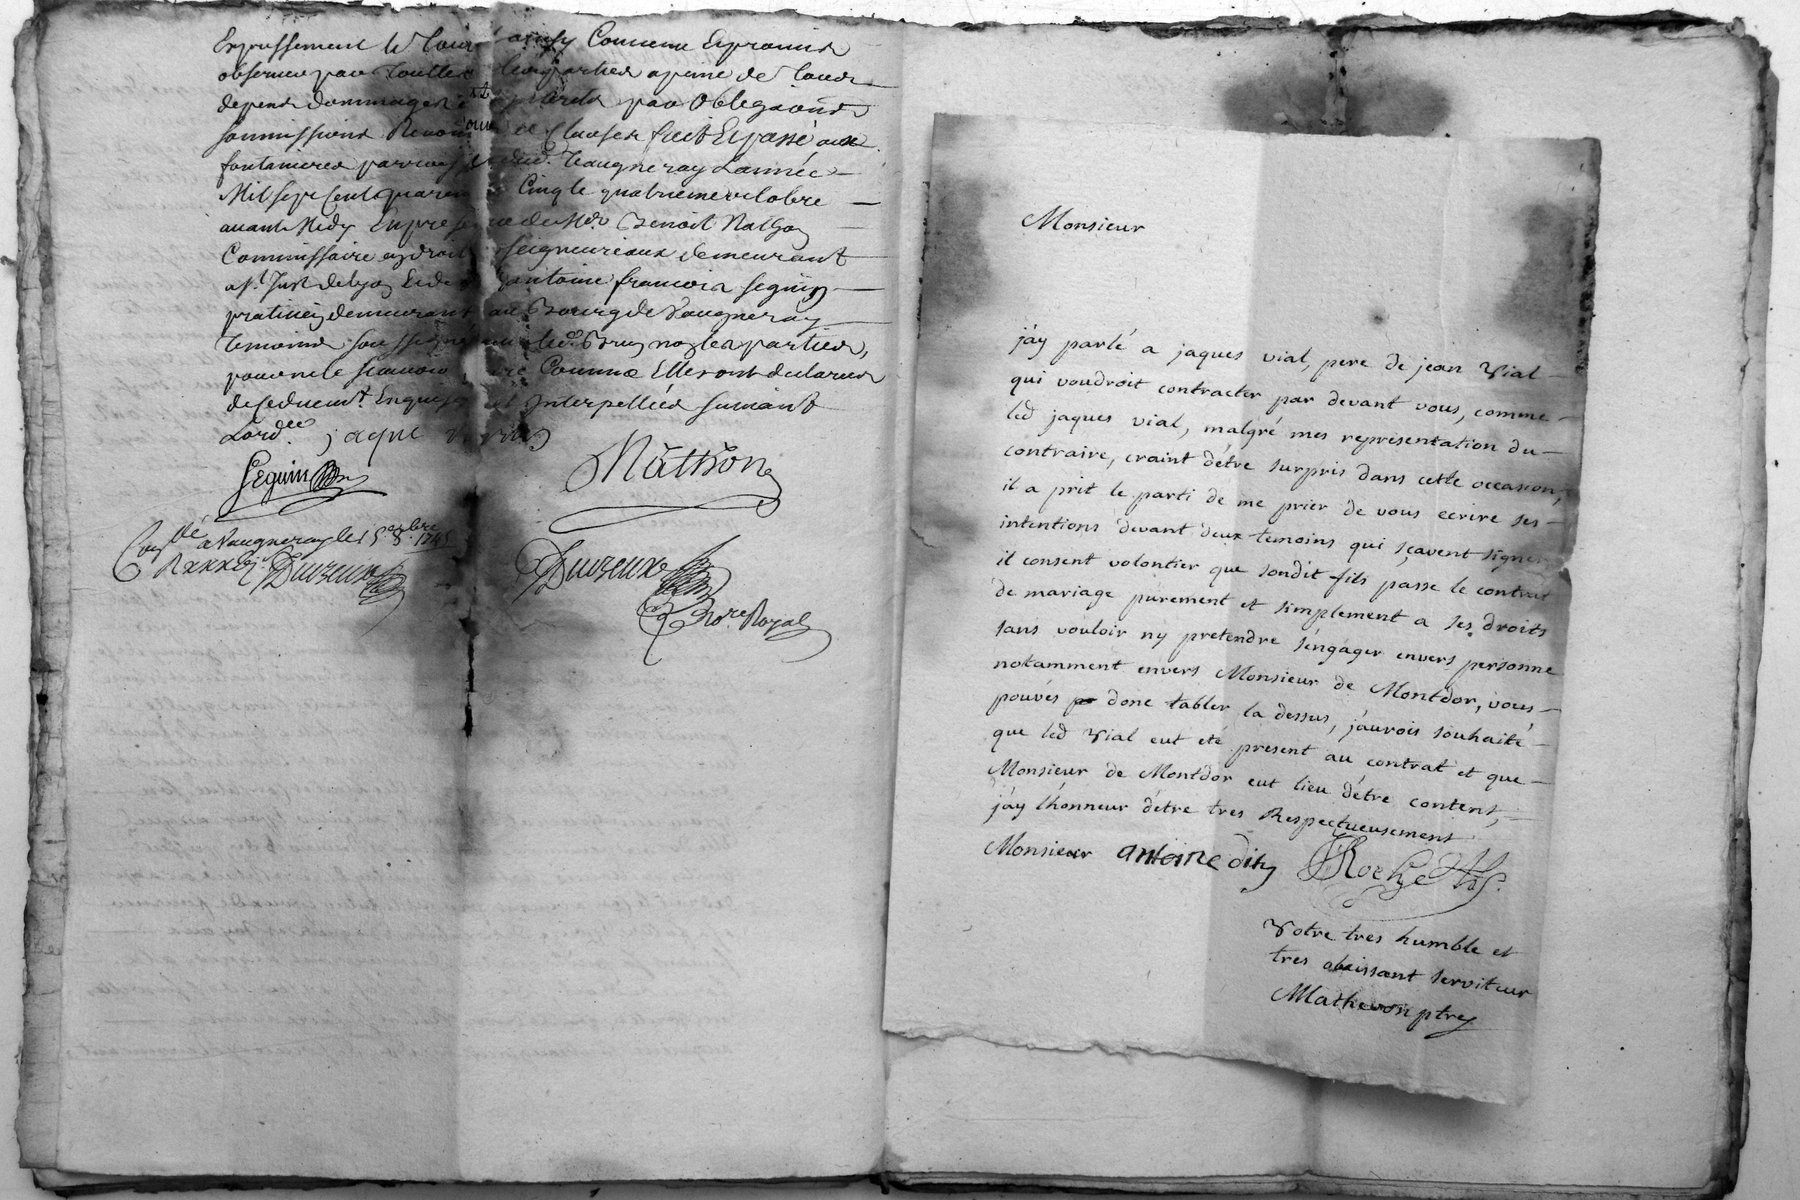 Expressement le tout ainsy Convenu Et promis
observer par touttes les parties a peine de tous
depens dommages et interets par Obligations
soumissions Renon[ciation] et Clauses fait Et passé, aux
fontanieres parroisse dud. Vaugneray L'année
Mil sept Cent quarante Cinq le quatrieme octobre
avant Midy En presence de Me. Benoît Mathon
Commissaire ez droits seigneuriaux demeurant
a St. Just de Lyon Et de Sr. antoine francois seguin
praticien demeurant au Bourg de Vaugneray
temoins soussignés les parties,
pour ne le scavoir faire Comme Elles ont declarées
de ce duement Enquises et Interpellées suivant
Lordce. jaque
Seguin
Mathon
Conllé a Vaugneray le 15e 8bre 1745
Duizeux
Duizeux
Nore. Royal
Monsieur
j'ay parlé a jaques vial, pere de jean Vial
qui voudroit contracter par devant vous, comme
led jaques vial, malgré mes representation du
contraire, craint d'étre surpris dans cette occasion,
il a prit le parti de me prier de vous ecrire ses
intentions devant deux temoins qui sçavent signer
il consent volontier que sondit fils passe le contrat
de mariage purement et simplement a ses droits
sans vouloir ny pretendre s'engager envers personne
notamment envers Monsieur de Montdor, vous
pouvés donc tabler la dessus, j'aurois souhaité
que led Vial eut eté present au contrat et que
Monsieur de Montdor eut lieu d'étre content,
j'ay l'honneur d'étre tres Respectueusement
Monsieur antoine
Votre tres humble et
tres obeissant serviteur
Mathevon ptre